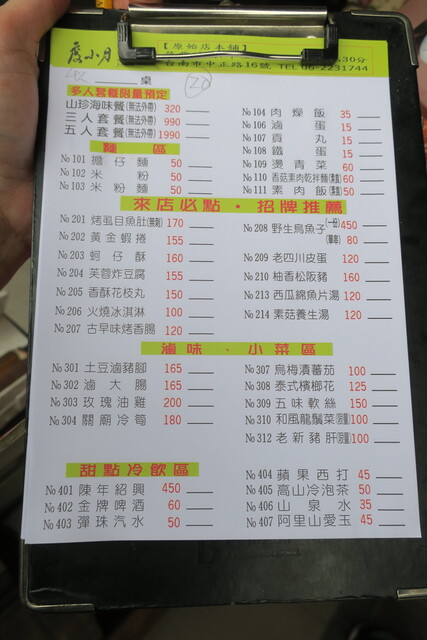 度小月
【原始店本舖】
30分
台南市中正路16號 TEL 06-2231744
桌
20
多人套餐限量預定
山珍海味餐(無法外帶) 320
三人套餐(無法外帶) 990
五人套餐(無法外帶) 1990
麵區
No101 擔仔麵 50
No102 米粉 50
No103 米粉麵 50
No104 肉燥飯 35
No106 滷蛋 15
No107 貢丸 15
No108 鐵蛋 15
No109 燙青菜 60
No110 香菇素肉乾拌麵(素) 60
No111 素肉飯(素) 50
來店必點・招牌推薦
No201 烤虱目魚肚(無刺) 170
No202 黃金蝦捲 155
No203 蚵仔酥 160
No204 芙蓉炸豆腐 155
No205 香酥花枝丸 150
No206 火燒冰淇淋 100
No207 古早味烤香腸 120
No208 野生烏魚子 450
80
No209 老四川皮蛋 120
No210 柚香松阪豬 160
No213 西瓜綿魚片湯 120
No214 素菇養生湯 120
滷味・小菜區
No301 土豆滷豬腳 165
No302 滷大腸 165
No303 玫瑰油雞 200
No304 關廟冷筍 180
No307 烏梅漬蕃茄 100
No308 泰式檳榔花 125
No309 五味軟絲 150
No310 和風龍鬚菜 100
No312 老新豬肝 100
甜點冷飲區
No401 陳年紹興 450
No402 金牌啤酒 60
No403 彈珠汽水 50
No404 蘋果西打 45
No405 高山冷泡茶 50
No406 山泉水 35
No407 阿里山愛玉 45